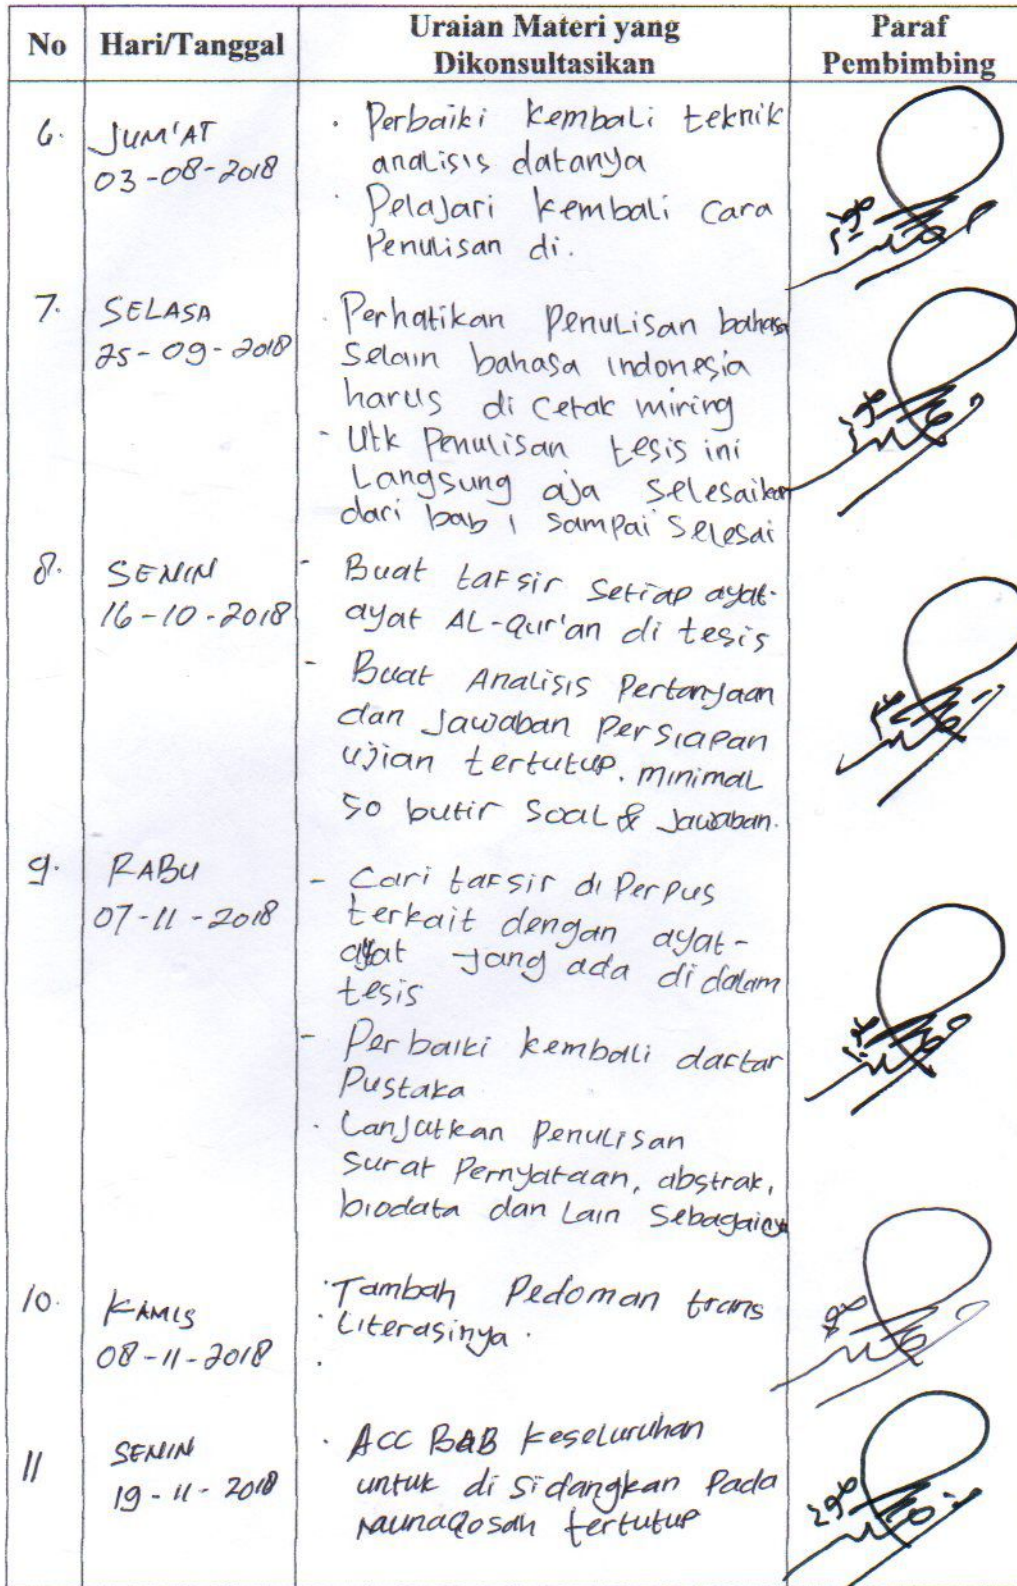 No Hari/Tanggal Uraian Materi yang Dikonsultasikan Paraf Pembimbing
6. JUM'AT
03-08-2018
· Perbaiki kembali teknik
analisis datanya
· Pelajari kembali cara
Penulisan di.
7. SELASA
25-09-2018
- Perhatikan Penulisan bahasa
selain bahasa indonesia
harus di cetak miring
- Utk Penulisan tesis ini
Langsung aja selesaikan
dari bab 1 sampai selesai
8. SENIN
16-10-2018
- Buat tafsir setiap ayat-
ayat AL-Qur'an di tesis
- Buat Analisis Pertanyaan
dan Jawaban Persiapan
ujian tertutup. minimal
50 butir soal & Jawaban.
9. RABU
07-11-2018
- Cari tafsir di Perpus
terkait dengan ayat-
ayat yang ada di dalam
tesis
- Perbaiki kembali daftar
Pustaka
· Lanjutkan Penulisan
surat Pernyataan, abstrak,
biodata dan Lain Sebagainya
10. KAMIS
08-11-2018
· Tambah Pedoman trans
· Literasinya.
11 SENIN
19-11-2018
· ACC BAB keseluruhan
untuk di sidangkan Pada
Munaqosah tertutup